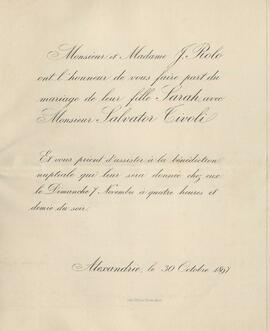 Monsieur et Madame J. Rolo
ont l'honneur de vous faire part du
mariage de leur fille Sarah, avec
Monsieur Salvator Tivoli
Et vous prient d'assister à la bénédiction
nuptiale qui leur sera donnée chez eux
le Dimanche 7 Novembre à quatre heures et
demie du soir.
Alexandrie, le 30 Octobre 1897